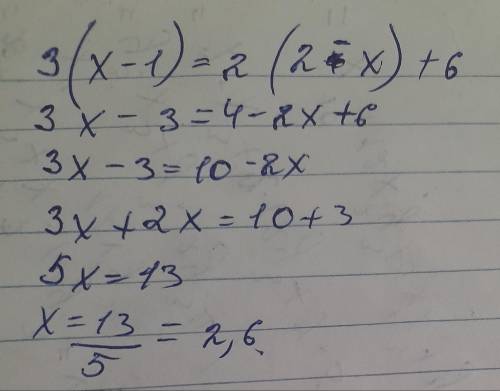 3(x-1)=2(2-x)+6
3x-3=4-2x+6
3x-3=10-2x
3x+2x=10+3
5x=13
x=13/5=2,6